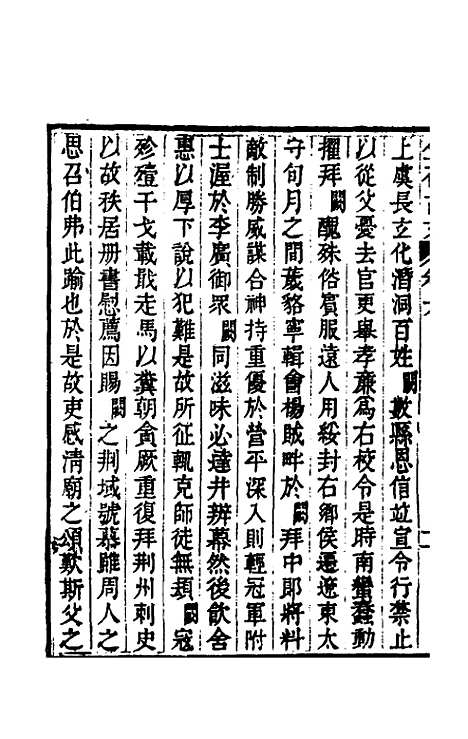 上虞長立化潛洞百姓闕數縣恩信竝宣令行禁止
以從父憂去官更舉孝廉爲右校令是時南蠻蠢動
擢拜闕醜殊俗賓服遠人用綏封右鄉侯遷遼東太
守旬月之間薉貉寧輯會楊賊畔於闕拜中郎將料
敵制勝威謀合神持重優於營平深入則輕冠軍附
士渥於李廣御眾闕同滋味必達井辦幕然後飲舍
惠以厚下說以犯難是故所征輒克師徒無㓺闕冠
殄殪干戈載戢走馬以糞朝僉厥重復拜荆州刺史
以故秩居册書慰薦因賜闕之荆域號慕雖周人之
思召伯弗此踰也於是故吏感清廟之頌歎斯父之